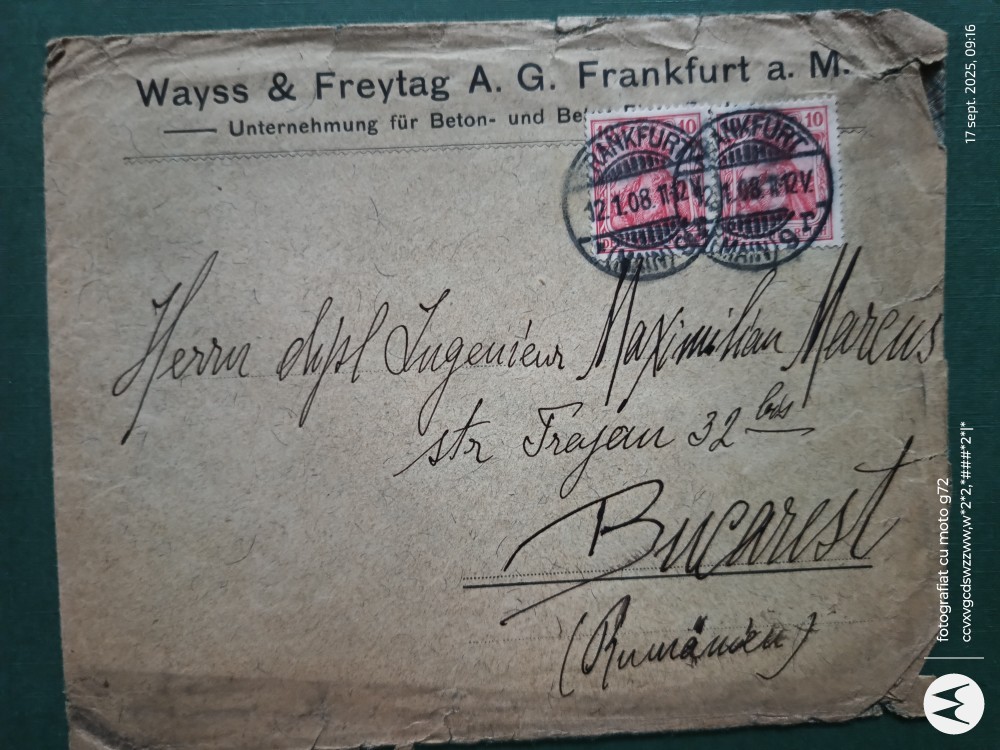 Wayss & Freytag A. G. Frankfurt a. M.
Unternehmung für Beton- und
10 10
FRANKFURT
12.1.08.11-12V.
(MAIN) 9
FRANKFURT
12.1.08.11-12V.
(MAIN) 9
Herrn dipl Ingenieur Maximilian Marcus
str Trajan 32 bis
Bucarest
(Rumänien)
17 sept. 2025, 09:16
fotografiat cu moto g72
ccvxvgcdswzzww,w*2*2,*###*2*|*